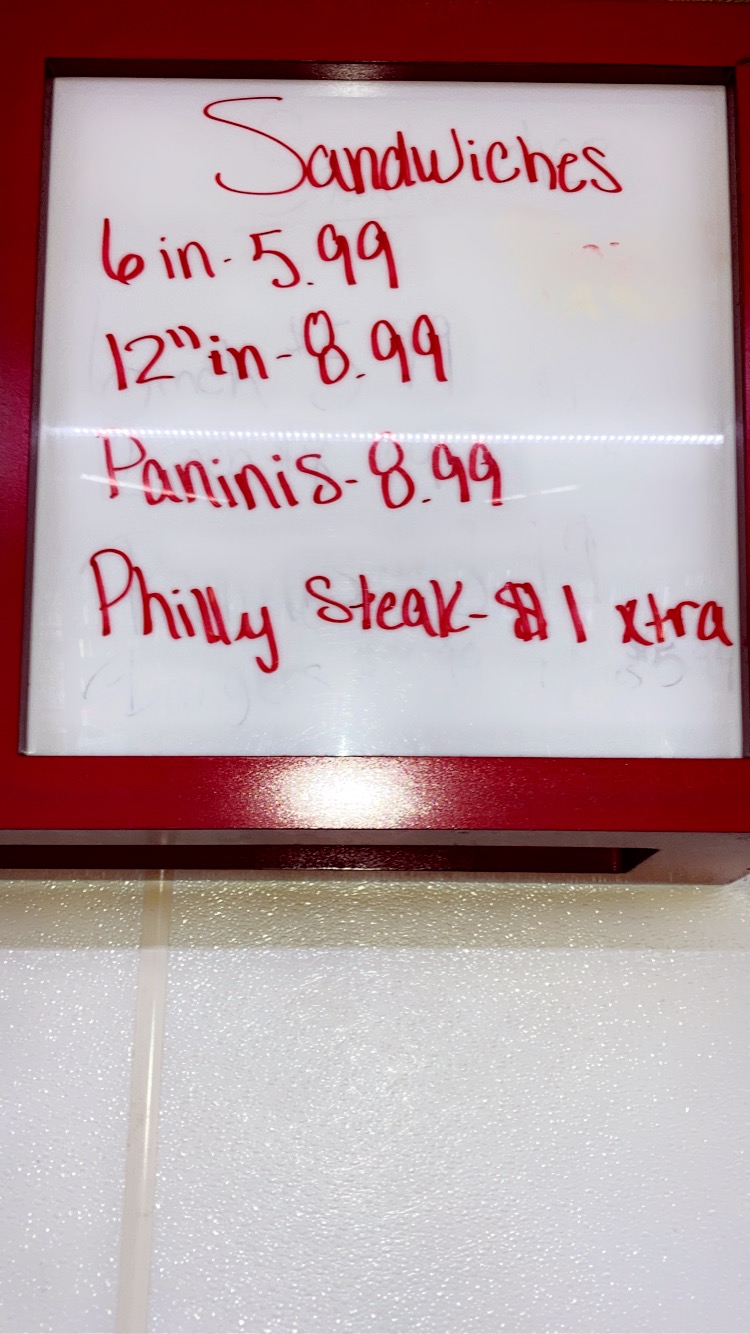 Sandwiches
6 in - 5.99
12" in - 8.99
Paninis - 8.99
Philly Steak - $1 xtra